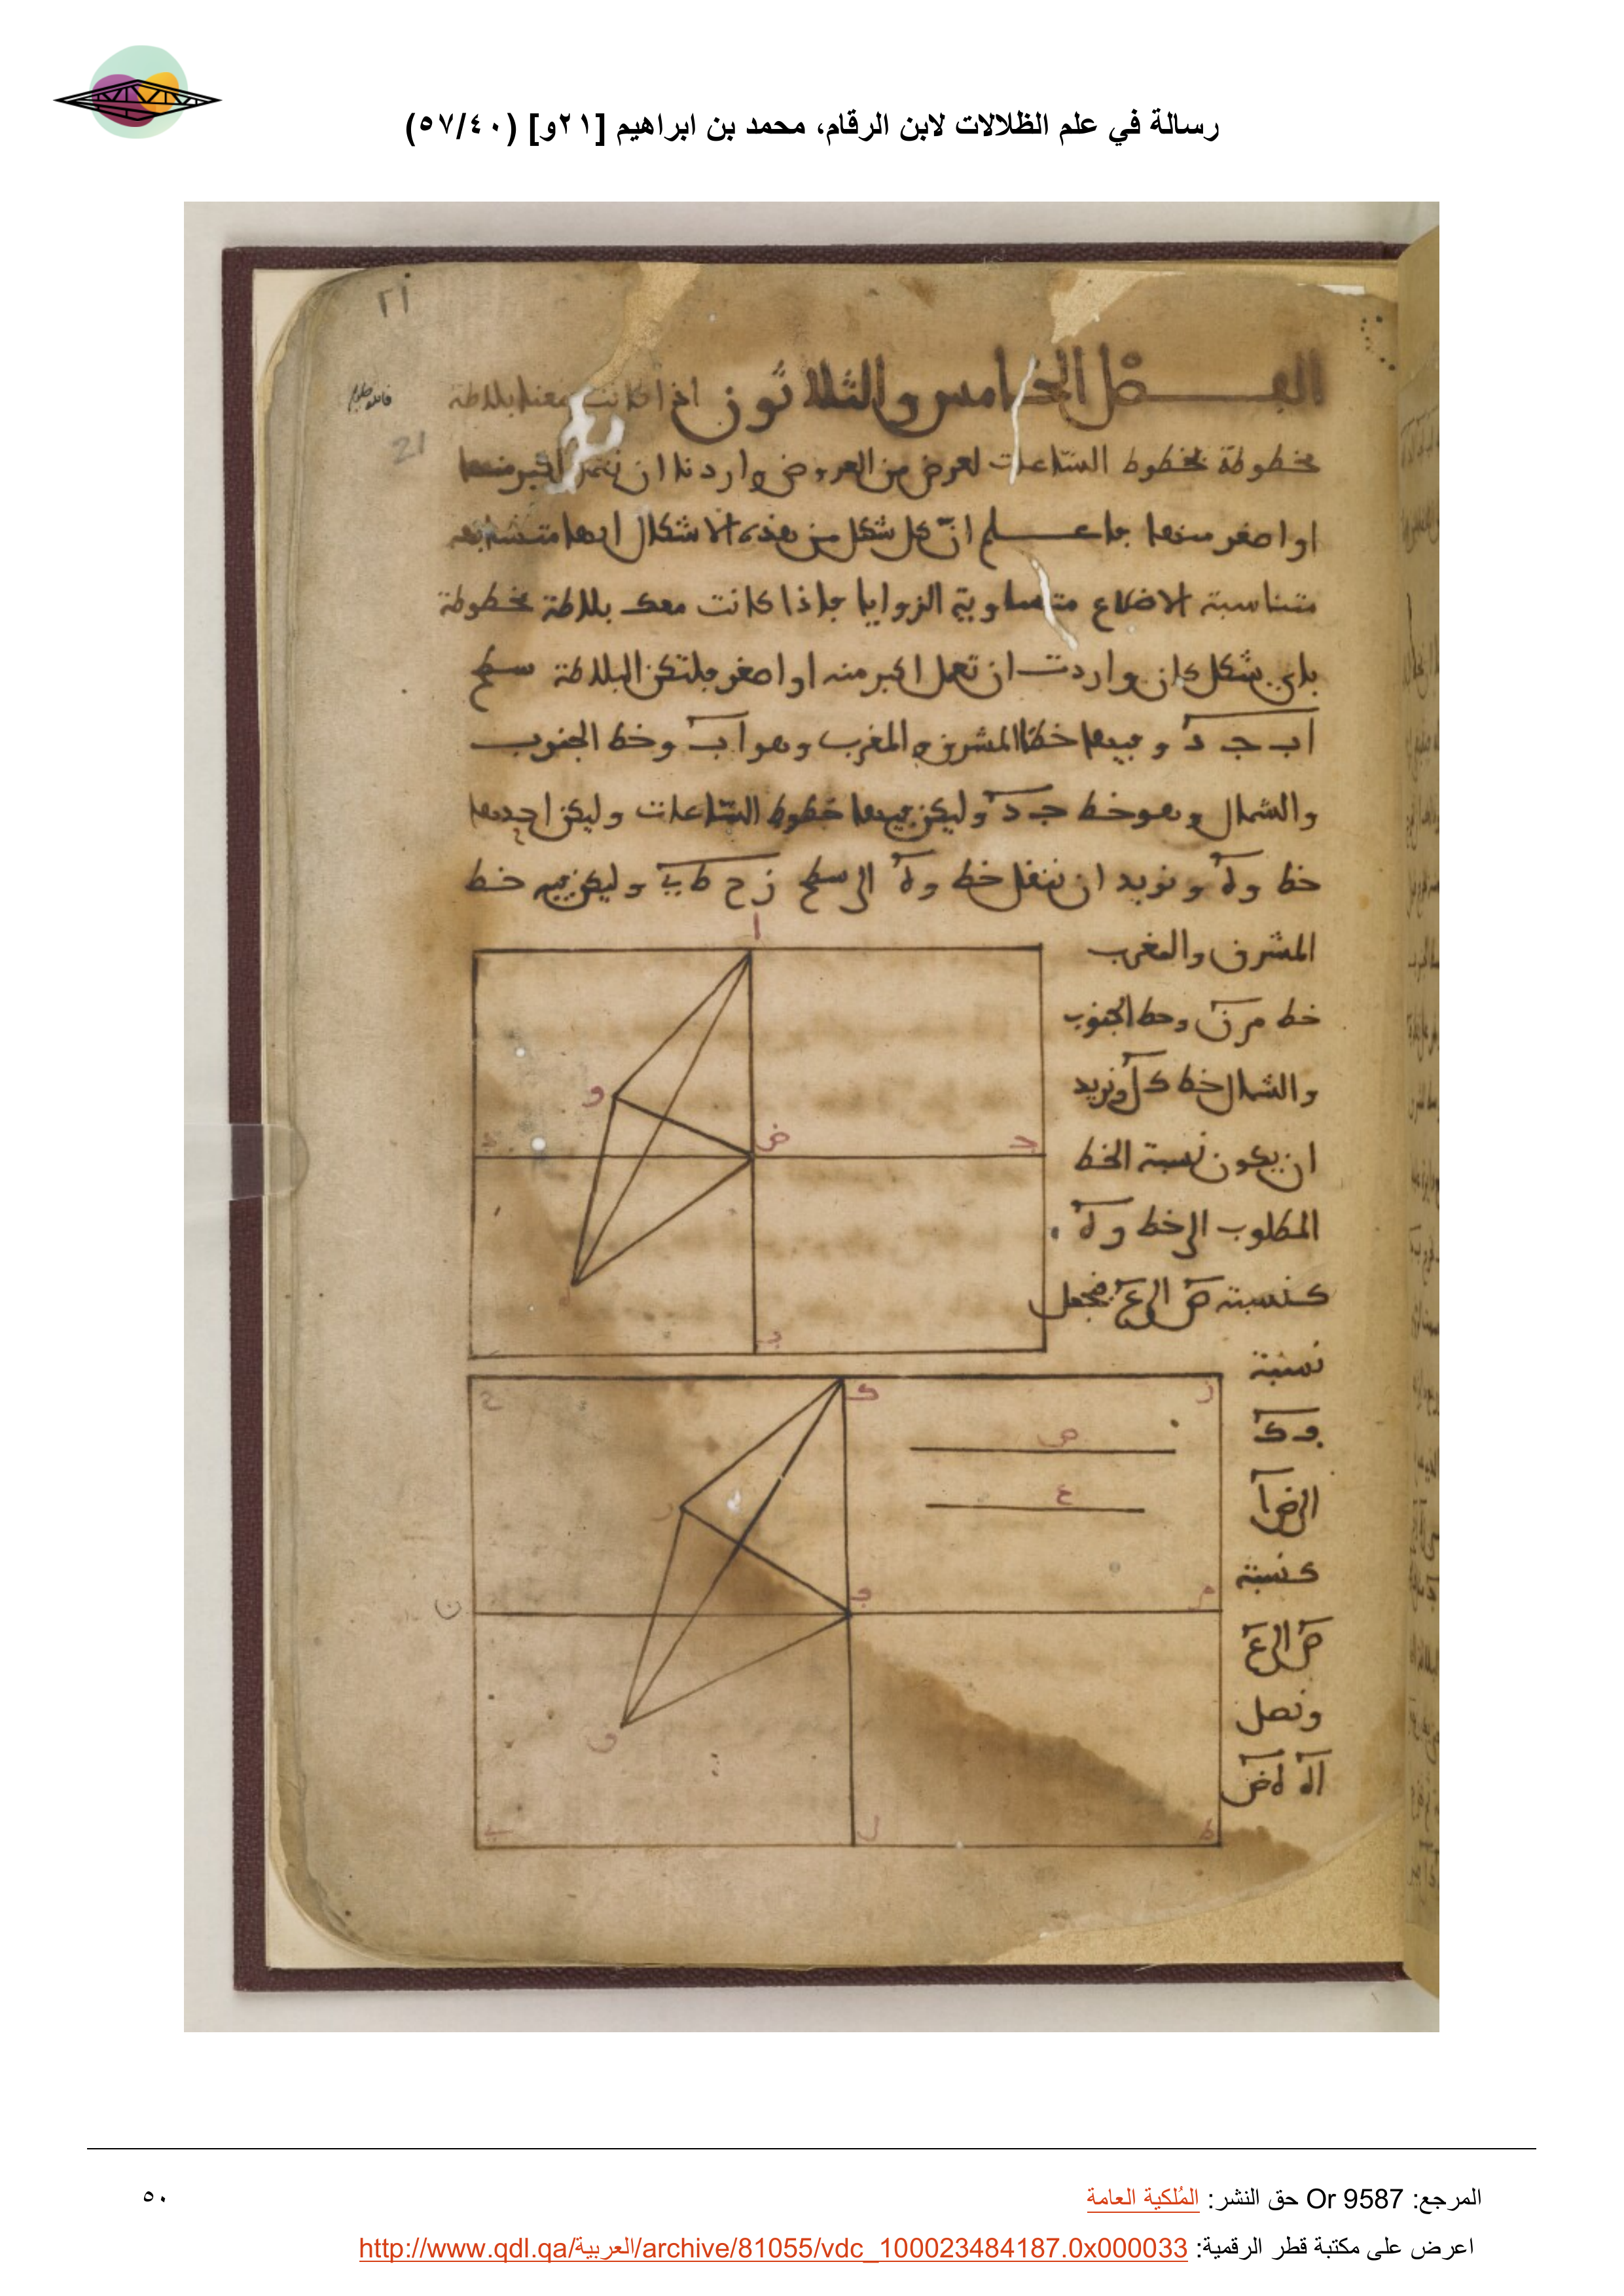 رسالة في علم الظلالات لابن الرقام، محمد بن ابراهيم [٢١و] (٥٧/٤٠)
٢١
21
الفصل الخامس والثلاثون اذا كانت معنا بلاطة
مخطوطة بخطوط الساعات لعرض من العروض واردنا ان نعمل اكبر منها
او اصغر منها فاعلم ان كل شكل من هذه الاشكال ابدا متشابهة
متناسبة الاضلاع متساوية الزوايا فاذا كانت معك بلاطة مخطوطة
باي شكل كان واردت ان تعمل اكبر منه او اصغر فلتكن البلاطة سطح
اب جـ د وفيها خط المشرق والمغرب وهو اب وخط الجنوب
والشمال وهو خط جـ د وليكن فيها خطوط الساعات وليكن احدها
خط وه ونريد ان ننقل خط وه الى سطح زح طي وليكن فيه خط
المشرق والمغرب
خط من وخط الجنوب
والشمال خط كل ونريد
ان يكون نسبة الخط
المطلوب الى خط وه
كنسبة ص الى ع فنجعل
نسبة
فك
الى ضا
كنسبة
ص الى ع
ونصل
اه هض
ا
و
ض
جـ
د
ه
ب
ز
ك
ح
ص
ع
ر
ف
م
ن
ق
ي
ل
ط
المرجع: Or 9587 حق النشر: المُلكية العامة
٥٠
اعرض على مكتبة قطر الرقمية: http://www.qdl.qa/العربية/archive/81055/vdc_100023484187.0x000033